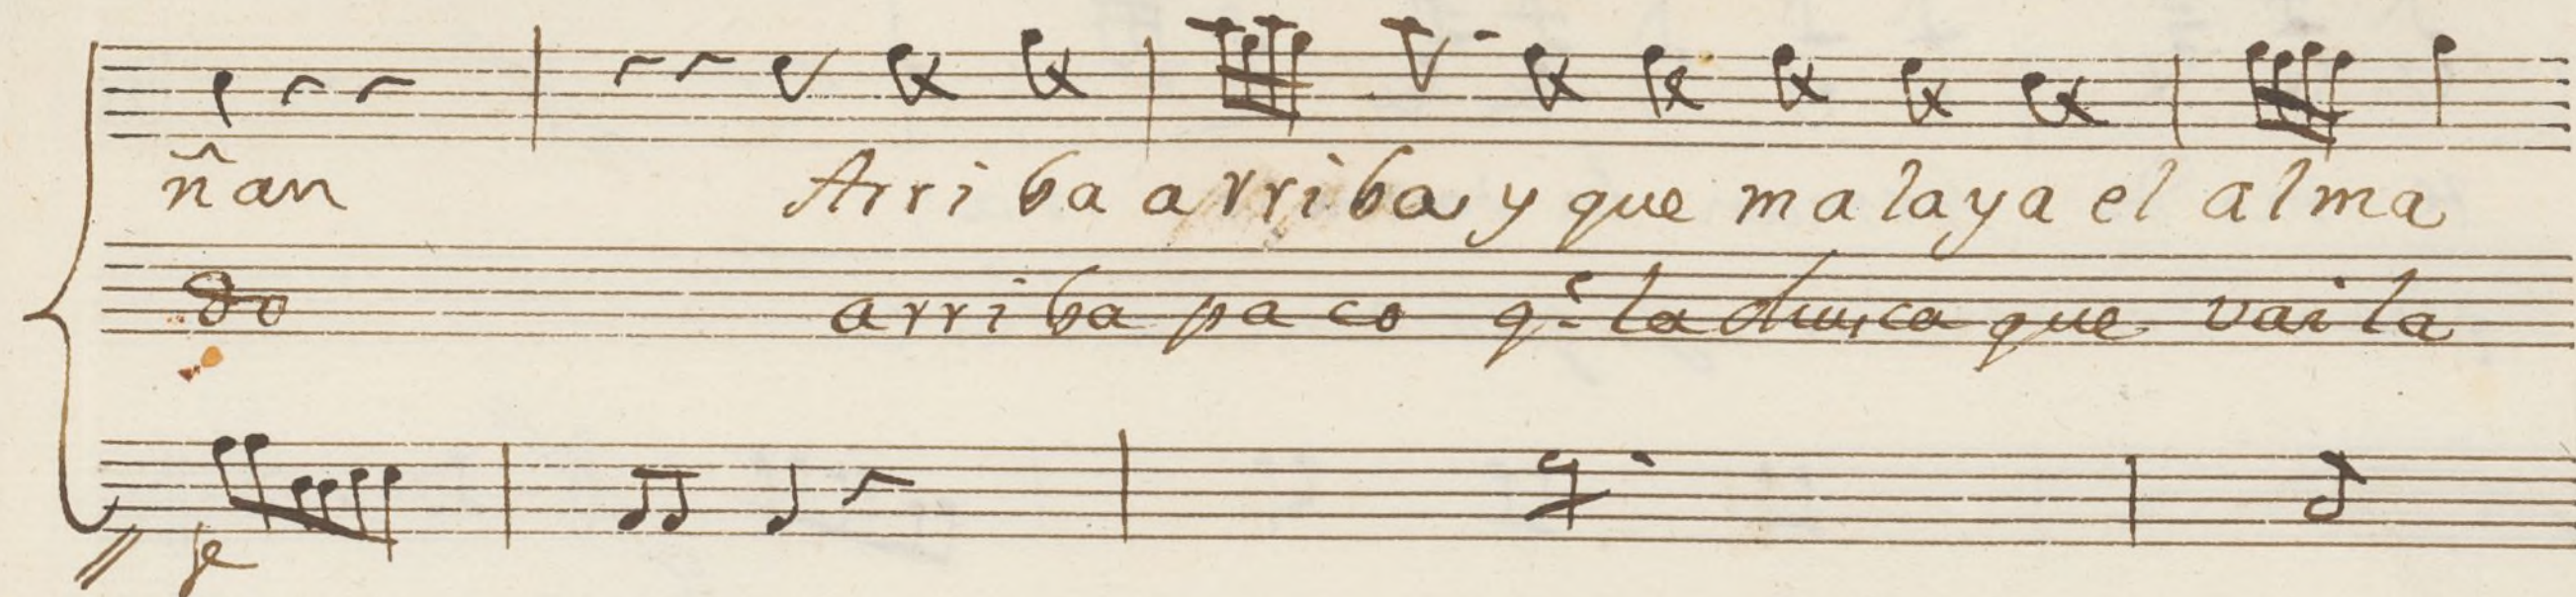 ñan Arriba arriba y que malaya el alma
do arriba paco q.e la que vaila